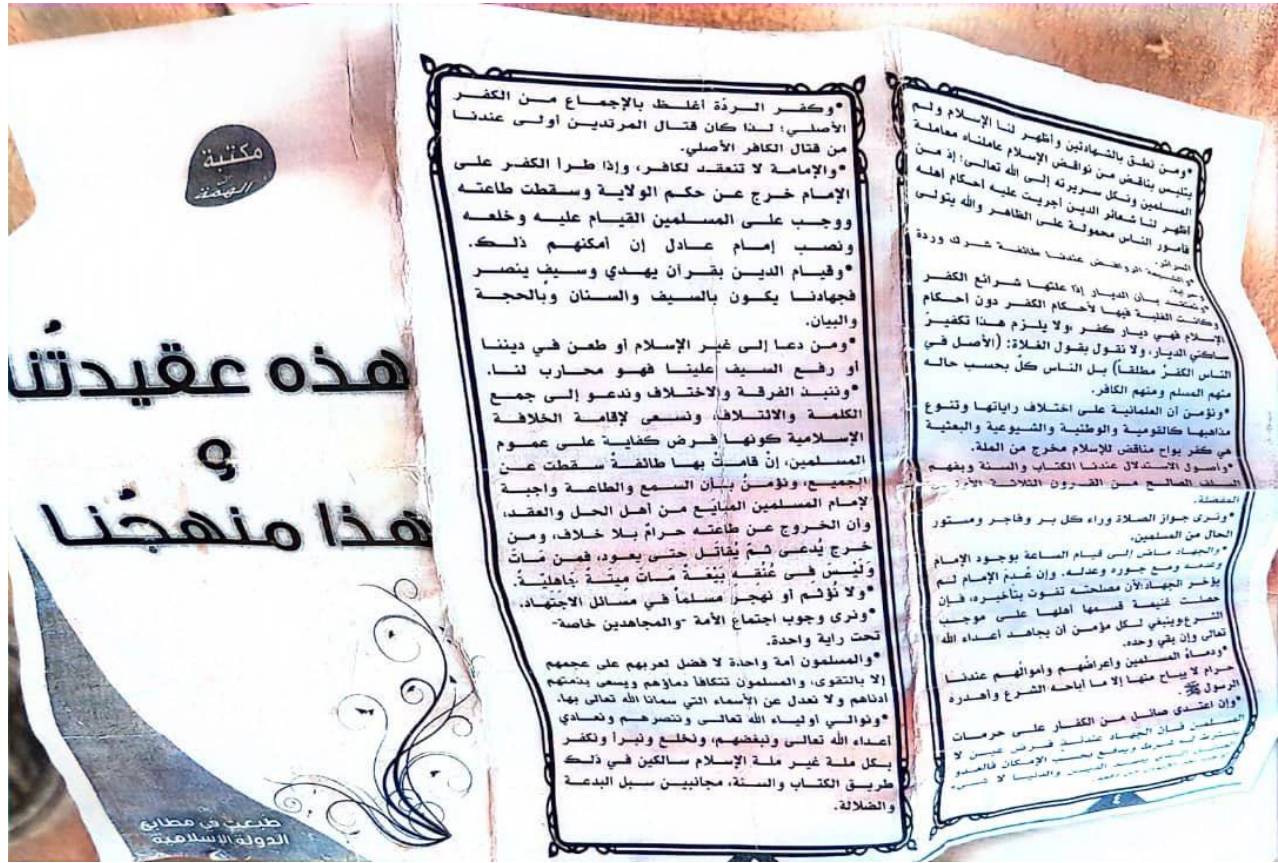 •ومن نطق بالشهادتين وأظهر لنا الإسلام ولم
يتلبس بناقض من نواقض الإسلام عاملناه معاملة
المسلمين ونكل سريرته إلى الله تعالى؛ إذ من
أظهر لنا شعائر الدين أجريت عليه أحكام أهله
فأمور الناس محمولة على الظاهر والله يتولى
السرائر.
•والشيعة الروافض عندنا طائفة شرك وردة
•ونعتقد بأن الديار إذا علتها شرائع الكفر
وكانت الغلبة فيها لأحكام الكفر دون أحكام
الإسلام فهي ديار كفر ،ولا يلزم هذا تكفير
ساكني الديار، ولا نقول بقول الغلاة: (الأصل في
الناس الكفرُ مطلقاً) بل الناس كلٌ بحسب حاله
منهم المسلم ومنهم الكافر.
•ونؤمن أن العلمانية على اختلاف راياتها وتنوع
مذاهبها كالقومية والوطنية والشيوعية والبعثية
هي كفر بواح مناقض للإسلام مخرج من الملة.
•وأصول الاستدلال عندنا الكتاب والسنة وبفهم
السلف الصالح من القرون الثلاثة
المفضلة.
•ونرى جواز الصلاة وراء كل بر وفاجر ومستور
الحال من المسلمين.
•والجهاد ماض إلى قيام الساعة بوجود الإمام
وعدمه ومع جوره وعدله. وإن عُدم الإمام لم
يؤخر الجهاد لأن مصلحته تفوت بتأخيره، فإن
حصلت غنيمة قسمها أهلها على موجب
الشرع وينبغي لكل مؤمن أن يجاهد أعداء الله
تعالى وإن بقي وحده.
•ودماءُ المسلمين وأعراضُهم وأموالُهم عندنا
حرام لا يباح منها إلا ما أباحه الشرع وأهدره
الرسول ﷺ.
•وإن اعتدى صائل من الكفار على حرمات
المسلمين فإن الجهاد عندئذ فرض عين لا
يشترط له شرط ويدفع بحسب الإمكان فالعدو
الدين والدنيا لا شيء
٤
•وكفر الردّة أغلظ بالإجماع من الكفر
الأصلي؛ لذا كان قتال المرتدين أولى عندنا
من قتال الكافر الأصلي.
•والإمامة لا تنعقد لكافر، وإذا طرأ الكفر على
الإمام خرج عن حكم الولاية وسقطت طاعته
ووجب على المسلمين القيام عليه وخلعه
ونصب إمام عادل إن أمكنهم ذلك.
•وقيام الدين بقرآن يهدي وسيف ينصر
فجهادنا يكون بالسيف والسنان وبالحجة
والبيان.
•ومن دعا إلى غير الإسلام أو طعن في ديننا
أو رفع السيف علينا فهو محارب لنا.
•وننبذ الفرقة والاختلاف وندعو إلى جمع
الكلمة والائتلاف ونسعى لإقامة الخلافة
الإسلامية كونها فرض كفاية على عموم
المسلمين، إنْ قامتْ بها طائفةٌ سقطت عن
الجميع، ونؤمنُ بأن السمع والطاعة واجبة
لإمام المسلمين المبايَع من أهل الحل والعقد،
وأن الخروج عن طاعته حرامٌ بلا خلاف، ومن
خرج يُدعى ثمّ يُقاتل حتى يعود، فمن مَاتَ
وَلَيْسَ في عُنُقه بَيْعَةٌ مات مِيتةً جَاهِليّةً.
•ولا نُؤثم أو نهجر مسلماً في مسائل الاجتهاد،
•ونرى وجوب اجتماع الأمة -والمجاهدين خاصة-
تحت راية واحدة.
•والمسلمون أمة واحدة لا فضل لعربهم على عجمهم
إلا بالتقوى، والمسلمون تتكافأ دماؤهم ويسعى بذمتهم
أدناهم ولا نعدل عن الأسماء التي سمانا الله تعالى بها.
•ونوالي أولياء الله تعالى وننصرهم ونعادي
أعداء الله تعالى ونبغضهم، ونخلع ونبرأ ونكفر
بكل ملة غير ملة الإسلام سالكين في ذلك
طريق الكتاب والسنة، مجانبين سبل البدعة
والضلالة.
مكتبة
الهمة
هذه عقيدتُنا
و
هذا منهجُنا
طبعت في مطابع
الدولة الإسلامية